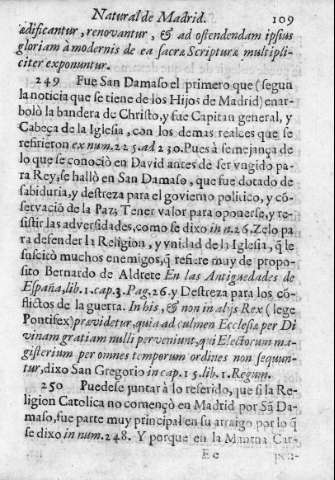 Natural de Madrid. 109
ædificantur, renovantur, & ad ostendendam ipsius
gloriam à modernis de ea sacræ Scripturæ multipli-
citer exponuntur.
249 Fue San Damaso el primero que (segun
la noticia que se tiene de los Hijos de Madrid) enar-
bolò la bandera de Christo, y fue Capitan general, y
Cabeça de la Iglesia, con los demas realces que se
refirieron ex num. 225. ad 230. Pues à semejança de
lo que se conociò en David antes de ser vngido pa-
ra Rey, se hallò en San Damaso, que fue dotado de
sabiduria, y destreza para el govierno politico, y cõ-
servaciõ de la Paz, Tener valor para oponerse, y re-
sistir las adversidades, como se dixo in n. 26. Zelo pa
ra defender la Religion, y vnidad de la Iglesia, q̃ le
suscitò muchos enemigos, q̃ refiere muy de propo-
sito Bernardo de Aldrete En las Antiguedades de
España, lib. 1. cap. 3. Pag. 26. y Destreza para los cõ-
flictos de la guerra. In his, & non in alijs Rex (lege
Pontifex) prævidetur, quia ad culmen Ecclesiæ per Di
vinam gratiam nulli perveniunt, qui Electorum ma-
gisterium per omnes temporum ordines non sequun-
tur, dixo San Gregorio in cap. 15. lib. 1. Regum.
250 Puedese juntar à lo referido, que si la Re-
ligion Catolica no començò en Madrid por Sã Da-
maso, fue parte muy principal en su arraigo por lo q̃
se dixo in num. 248. Y porque en la Mantua Car-
Ee